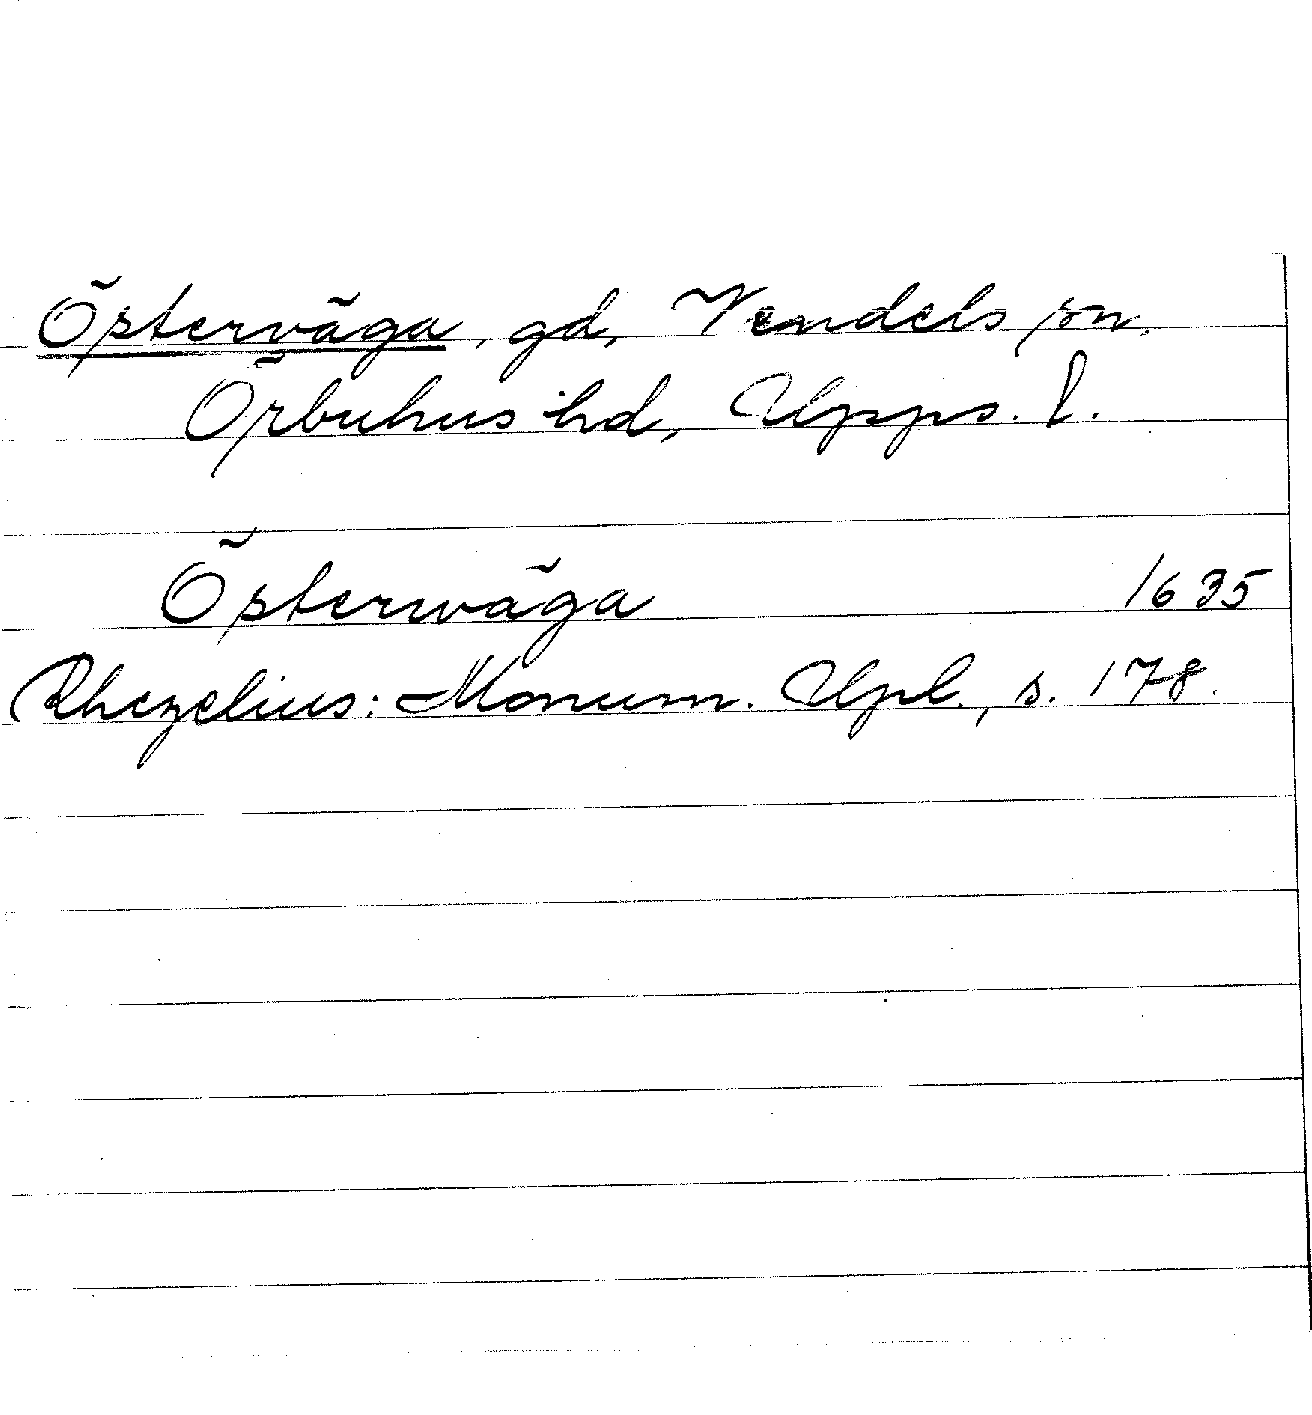 Östervåga, gd, Vendels sn.
Örbyhus hd, Upps. l.
Österwåga 1635
Rhezelius: Monum. Upl., s. 178.